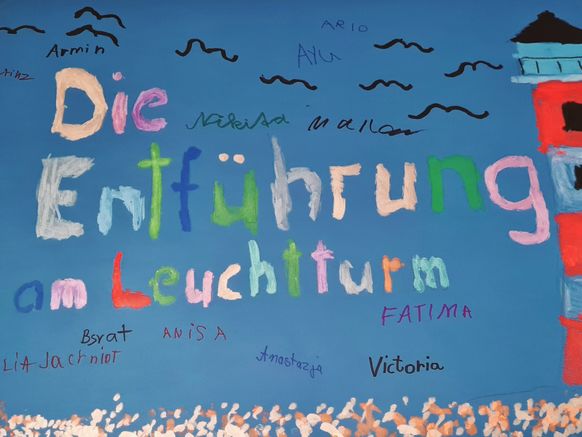 ARIO
Armin
Ayu
Die
Nikita
Entführung
am Leuchtturm
FATIMA
Bsrat ANISA
LiA Jachniot
Anastazja
Victoria